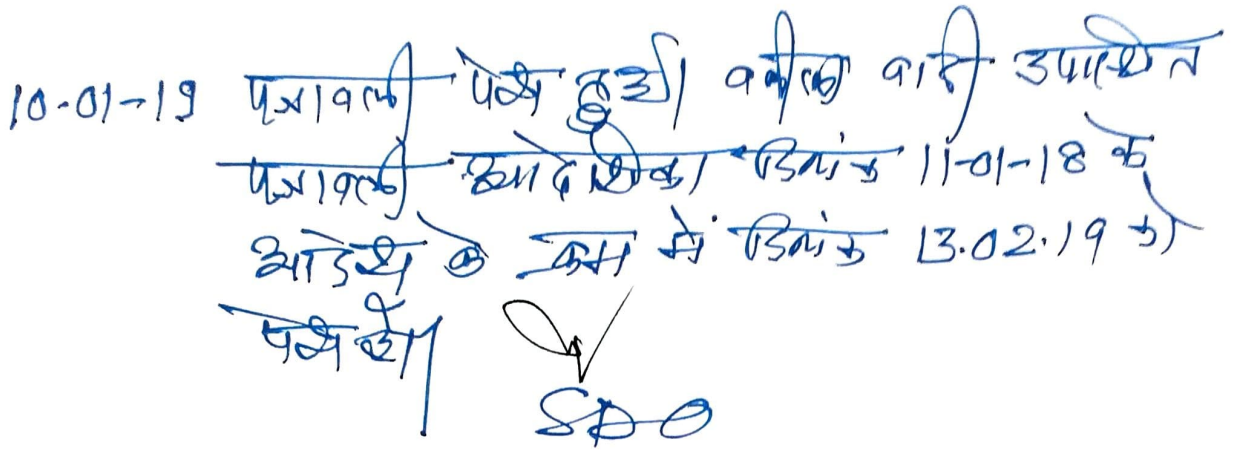 10-01-19 पत्रावली पेश हुई। वकील वादी उपस्थित
पत्रावली आदेशिका दिनांक 11-01-18 के
आदेश के क्रम में दिनांक 13.02.19 को
पेश हो।
SDO